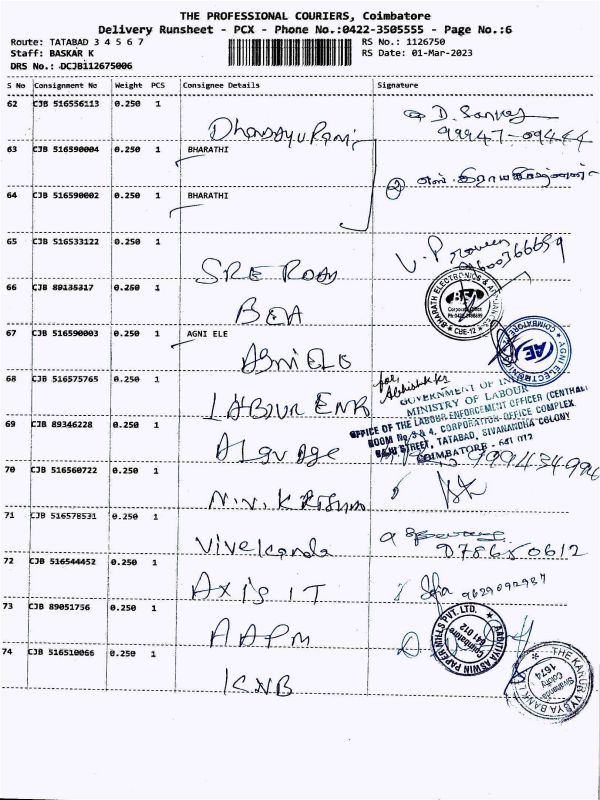 THE PROFESSIONAL COURIERS, Coimbatore
Delivery Runsheet - PCX - Phone No.:0422-3505555 - Page No.:6
Route: TATABAD 3 4 5 6 7
RS No.: 1126750
Staff: BASKAR K
RS Date: 01-Mar-2023
DRS No.: DCJB112675006
S No Consignment No Weight PCS Consignee Details Signature
62 CJB 516556113 0.250 1
D. Sankar
99947-09444
63 CJB 516590004 0.250 1 BHARATHI
64 CJB 516590002 0.250 1 BHARATHI
2
65 CJB 516533122 0.250 1
V. Praveen
SRE Rom
66 CJB 89135317 0.250 1
BEA
BHARATH ELECTRONICS &
BEA
Corporate Office
CBE-12
67 CJB 516590003 0.250 1 AGNI ELE
Agni ELE
AGNI ELECTRONICS COIMBATORE
AE
68 CJB 516575765 1 0.250
for, Abhishek Ks
LABOUR ENR
GOVERNMENT OF INDIA
MINISTRY OF LABOUR
OFFICE OF THE LABOUR ENFORCEMENT OFFICER (CENTRAL)
ROOM No 3 & 4, CORPORATION OFFICE COMPLEX
RAJU STREET, TATABAD, SIVANANDHA COLONY
COIMBATORE - 641 012
69 CJB 89346228 0.250 1
999434996
70 CJB 516560722 0.250 1
N.V. Krishna
71 CJB 516578531 0.250 1
Vivekanda
9786550612
72 CJB 516544452 0.250 1
Axis IT
9629092987
73 CJB 89051756 0.250 1
AAPM
ADDITYA ASWIN PAPER MILLS PVT. LTD.
Coimbatore
641 012
74 CJB 516510066 0.250 1
KVB
THE KARUR VYSYA BANK LTD
Sivananda
Colony
1674